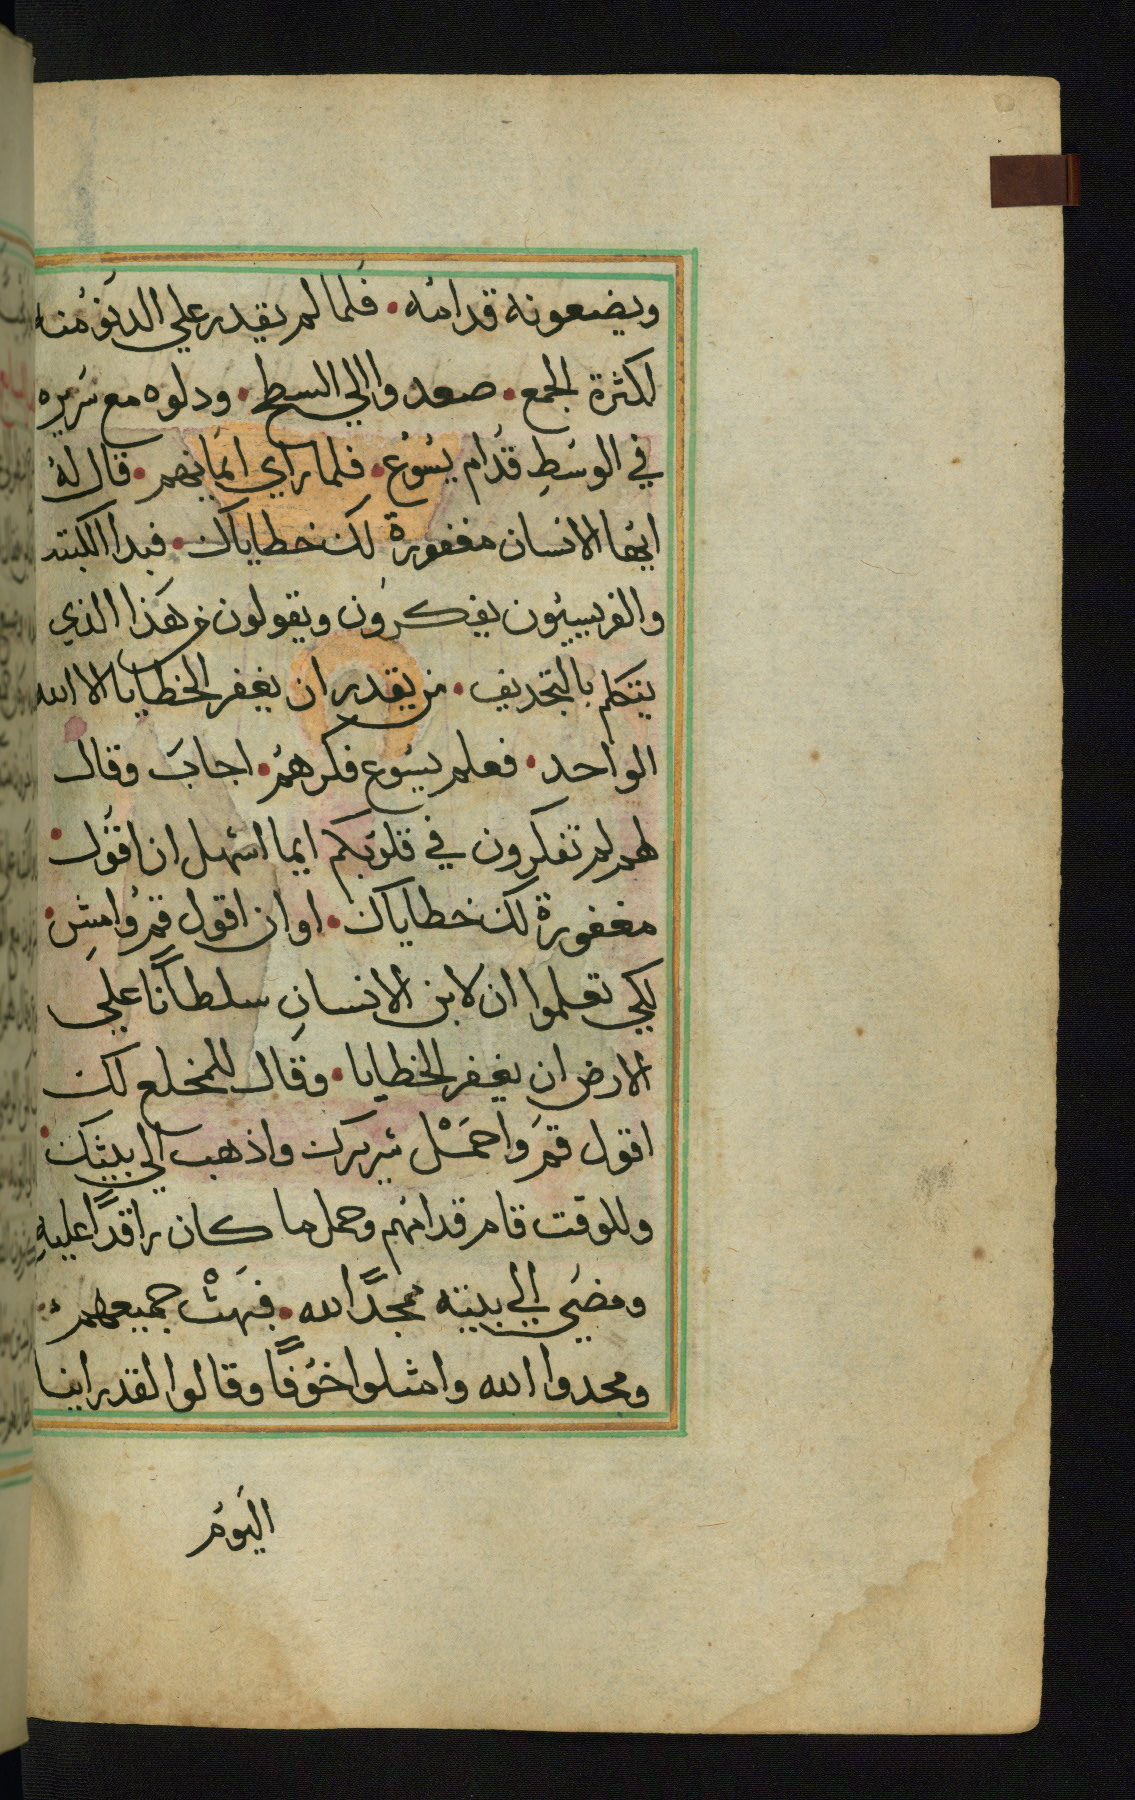 ويضعونه قدامه • فلما لم يقدر علي الدنو منه
لكثرة الجمع • صعدوا الي السطح • ودلوه مع سريره
في الوسط قدام يسوع • فلما راي ايمانهم • قال له
ايها الانسان مغفورة لك خطاياك • فبدا الكتبه
والفريسيون يفكرون ويقولون من هذا الذي
يتكلم بالتجديف • من يقدر ان يغفر الخطايا الا الله
الواحد • فعلم يسوع فكرهم • اجاب وقال
لهم لم تفكرون في قلوبكم ايما اسهل ان اقول •
مغفورة لك خطاياك • او ان اقول قم وامش •
لكي تعلموا ان لابن الانسان سلطانًا علي
الارض ان يغفر الخطايا • وقال للمخلع لك
اقول قم واحمل سريرك واذهب الي بيتك •
وللوقت قام قدامهم وحمل ما كان راقدًا عليه
ومضي الي بيته ممجدًا لله • فبهت جميعهم •
ومجدوا الله وامتلوا خوفًا وقالوا لقد راينا
اليوم